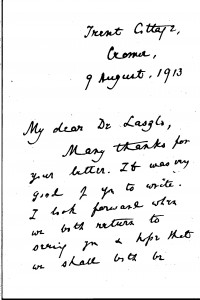 Trent Cottage,
Cromer,
9 August, 1913
My dear De Laszlo,
Many thanks for
your letter. It was very
good of you to write.
I look forward when
we both return to
seeing you & hope that
we shall both be